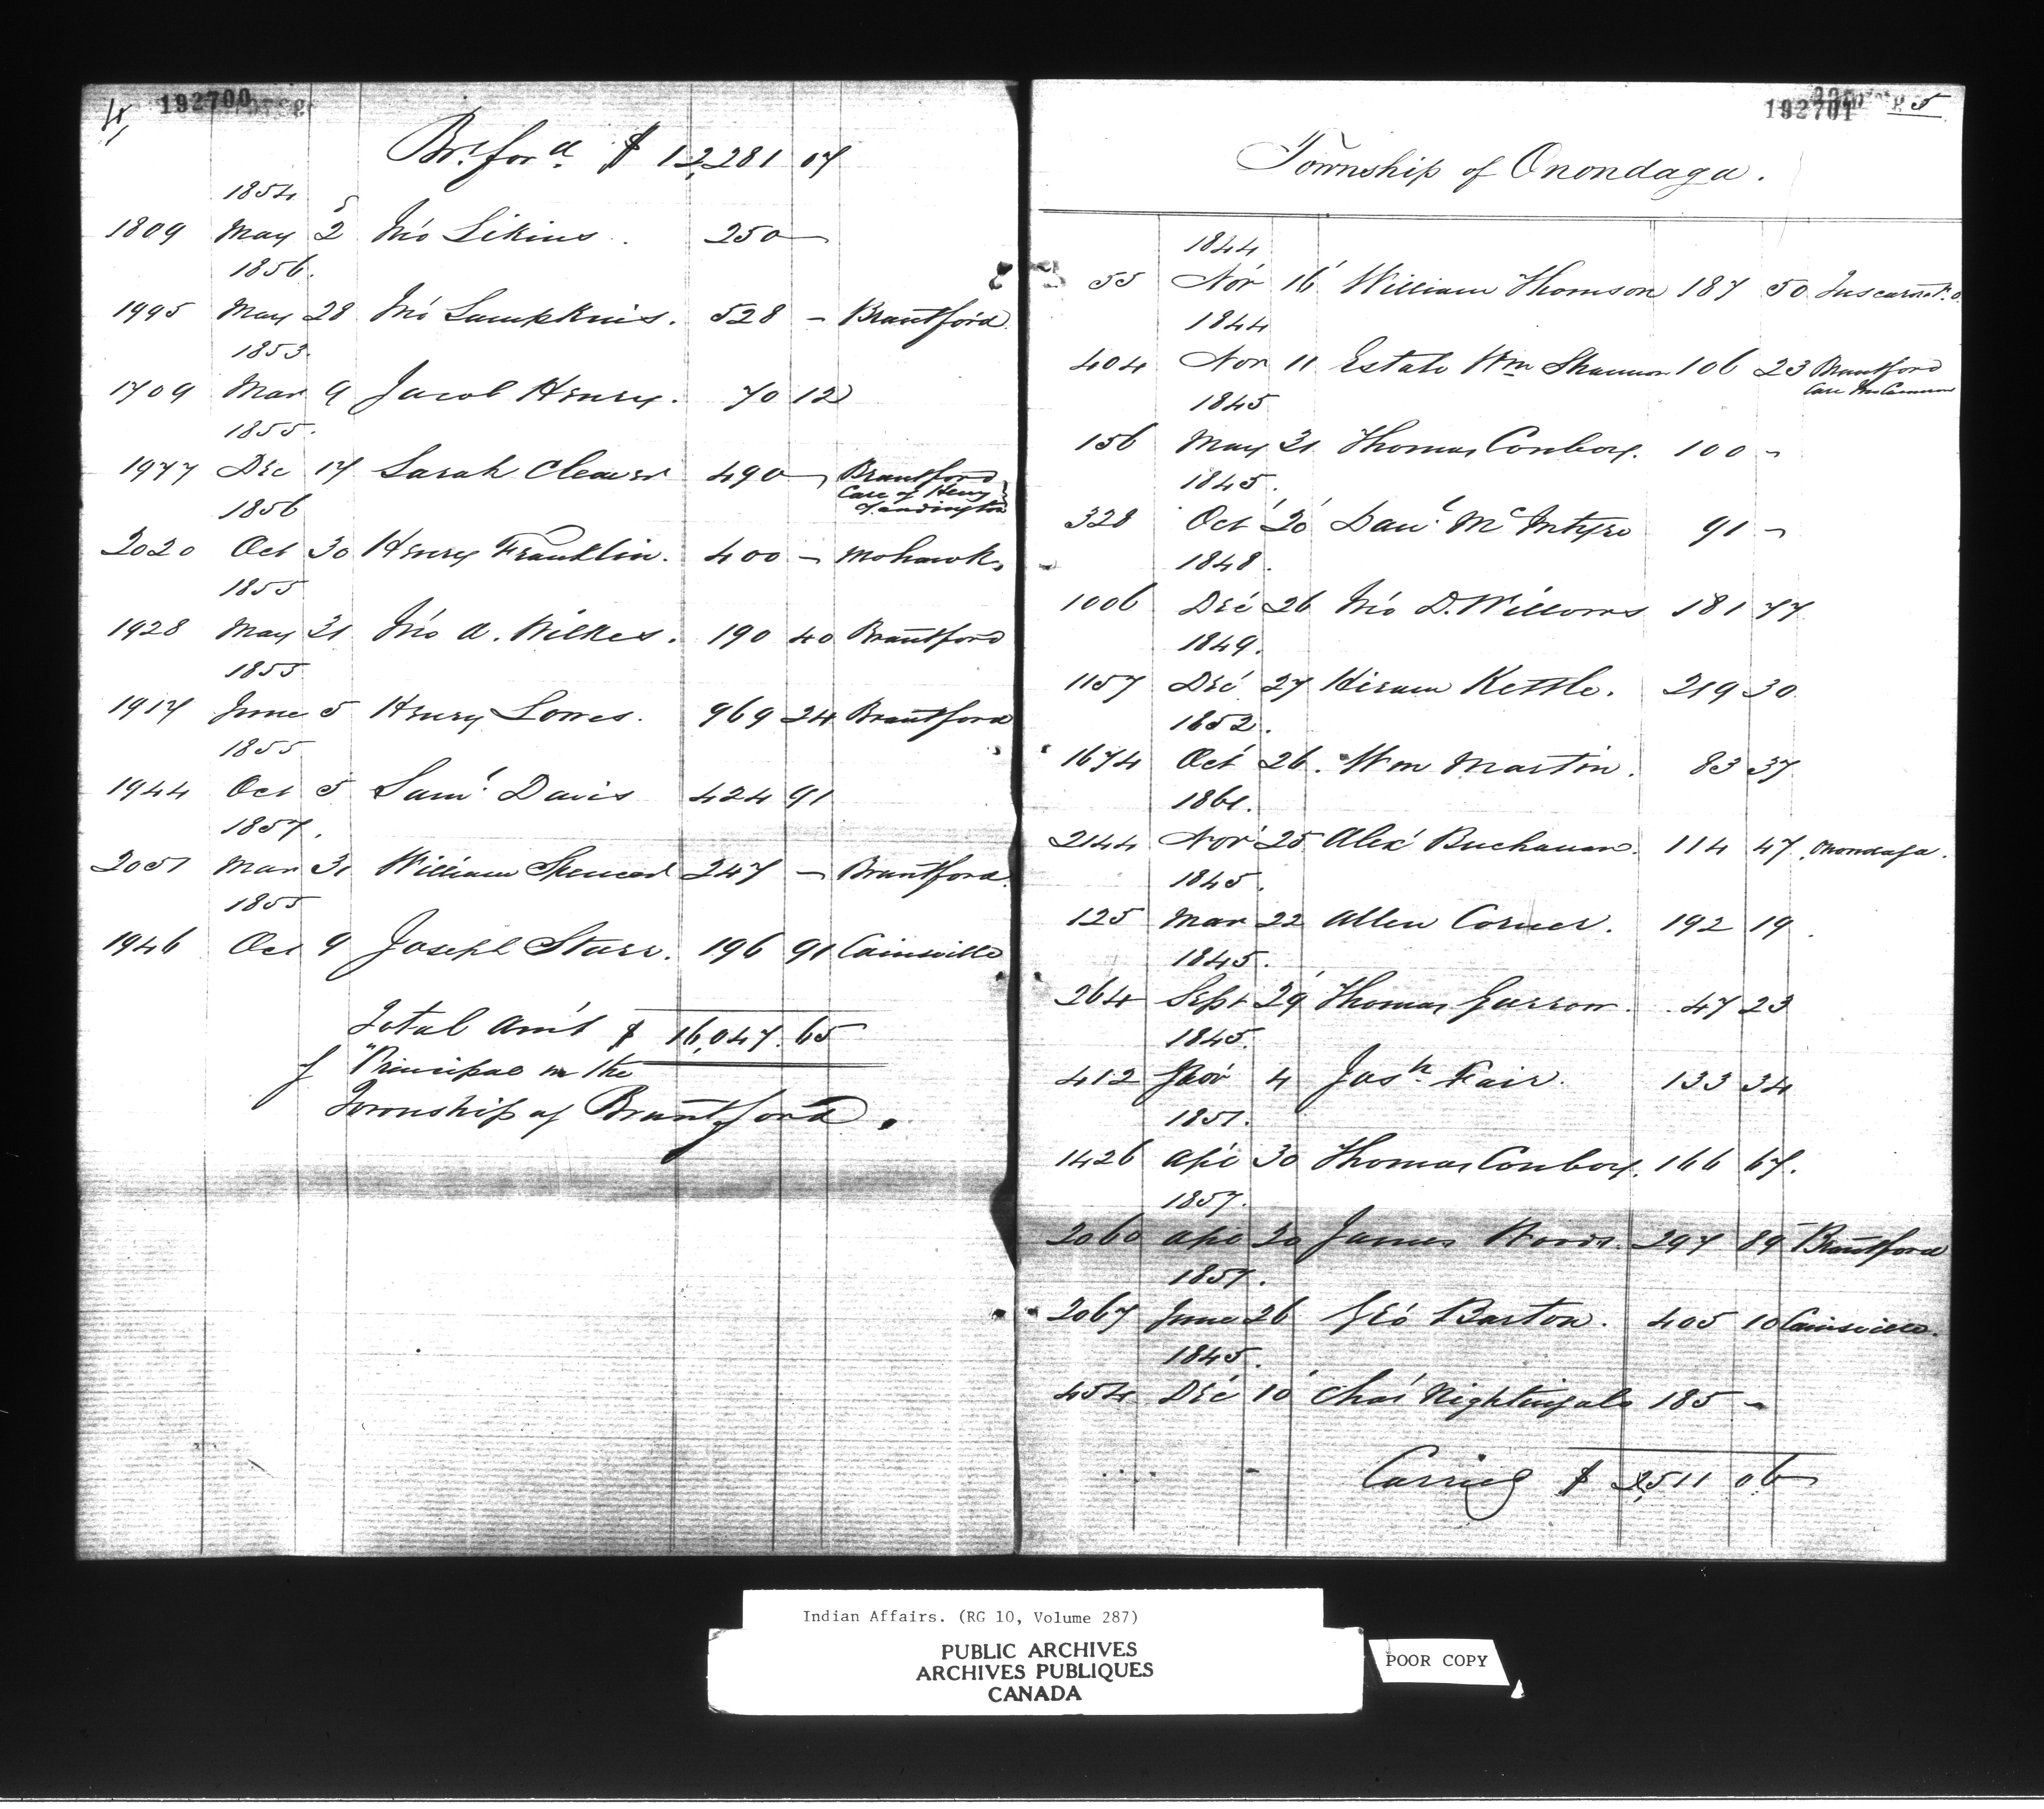 4
192700
Brt ford $ 12,281 07
1854
1809 May 25 Jno Likins. 250 —
1856.
1995 May 28 Jno Lampkins. 528 — Brantford
1853.
1709 Mar 9 Jacob Henry. 70 12
1855.
1977 Dec 17 Sarah Cleaver 490 — Brantford
Care of Henry
1856
2020 Oct 30 Henry Franklin. 400 — Mohawk,
1855
1928 May 31 Jno A. Wilkes. 190 40 Brantford
1855
1917 June 5 Henry Lores. 969 24 Brantford
1855
1944 Oct 5 Saml Davis 424 91
1857.
2051 Mar 31 William Spencer 247 — Brantford
1855
1946 Oct 9 Joseph Starr. 196 91 Cainsville
Total Am't $ 16,047.65
of Principal in the
Township of Brantford.
192701
5
Township of Onondaga.
1844
55 Nov 16 William Thomson 187 50 Tuscarora P.O.
1844
404 Nov 11 Estate Wm Shannon 106 23 Brantford
Care
1845
156 May 31 Thomas Conboy. 100 —
1845.
328 Oct 20 Danl McIntyre 91 —
1848.
1006 Dec 26 Jno D. Willows 181 77
1849.
1157 Dec 27 Hiram Kettle. 219 30
1852.
1674 Oct 26. Wm Martin. 83 37
1861.
2144 Nov 25 Alex Buchanan. 114 47 Onondaga.
1845.
125 Mar 22 Allen Corner. 192 19
1845.
264 Sept 29 Thomas Garrow. 47 23
1845.
412 Nov 4 Josh Fair. 133 34
1851.
1426 Apl 30 Thomas Conboy. 166 67.
1857.
2060 Apl 20 James Woods. 297 89 Brantford
1857.
2067 June 26 Geo Barton. 405 10 Cainsville.
1845.
454 Dec 10 Chas Nightingale 185 —
Carried $ 2,511 06
Indian Affairs. (RG 10, Volume 287)
PUBLIC ARCHIVES
ARCHIVES PUBLIQUES
CANADA
POOR COPY